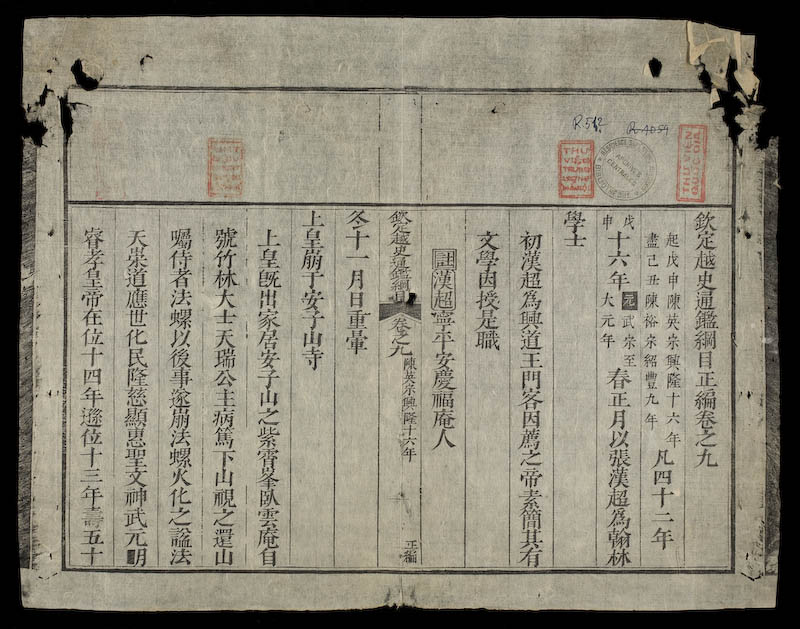 R.512
欽定越史通鑑綱目正編卷之九
起戊申陳英宗興隆十六年
盡己丑陳裕宗紹豐九年
凡四十二年
戊申十六年元武宗至大元年春正月以張漢超為翰林
學士
初漢超為興道王門客因薦之帝素簡其有
文學因授是職
註漢超寧平安慶福庵人
欽定越史通鑑綱目 卷之九 陳英宗興隆十六年 正編
冬十一月日重暈
上皇崩于安子山寺
上皇旣出家居安子山之紫霄峯臥雲庵自
號竹林大士天瑞公主病篤下山視之還山
囑侍者法螺以後事遂崩法螺火化之謚法
天崇道應世化民隆慈顯惠聖文神武元明
睿孝皇帝在位十四年遜位十三年壽五十
THƯ VIỆN